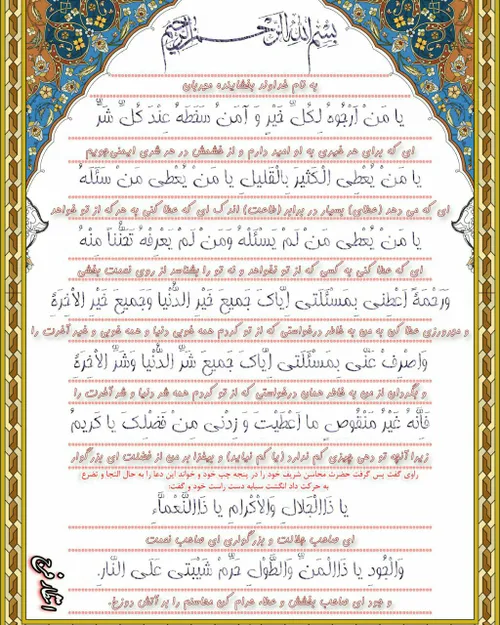 بِسْمِ اللهِ الرَّحْمنِ الرَّحیمِ
به نام خداوند بخشاینده مهربان
یا مَنْ اَرْجُوهُ لِکُلِّ خَیْرٍ وَ آمَنُ سَخَطَهُ عِنْدَ کُلِّ شَرٍّ
ای که برای هر خیری به او امید دارم و از خشمش در هر شری ایمنی‌جویم
یا مَنْ یُعْطِی الْکَثیرَ بِالْقَلیلِ یا مَنْ یُعْطی مَنْ سَئَلَهُ
ای که می دهد (عطای) بسیار در برابر (طاعت) اندک ای که عطا کنی به هرکه از تو خواهد
یا مَنْ یُعْطی مَنْ لَمْ یَسْئَلْهُ وَمَنْ لَمْ یَعْرِفْهُ تَحَنُّناً مِنْهُ
ای که عطا کنی به کسی که از تو نخواهد و نه تو را بشناسد از روی نعمت بخشی
وَرَحْمَةً اَعْطِنی بِمَسْئَلَتی اِیّاکَ جَمیعَ خَیْرِ الدُّنْیا وَجَمیعَ خَیْرِ الاْخِرَةِ
و مهرورزی عطا کن به من به خاطر درخواستی که از تو کردم همه خوبی دنیا و همه خوبی و خیر آخرت را
وَاصْرِفْ عَنّی بِمَسْئَلَتی اِیّاکَ جَمیعَ شَرِّ الدُّنْیا وَشَرِّ الاْخِرَةِ
و بگردان از من به خاطر همان درخواستی که از تو کردم همه شر دنیا و شر آخرت را
فَاِنَّهُ غَیْرُ مَنْقُوصٍ ما اَعْطَیْتَ وَ زِدْنی مِنْ فَضْلِکَ یا کَریمُ
زیرا آنچه تو دهی چیزی کم ندارد (یا کم نیاید) و بیفزا بر من از فضلت ای بزرگوار
راوی گفت پس گرفت حضرت محاسن شریف خود را در پنجه چپ خود و خواند این دعا را به حال التجا و تضرع
به حرکت داد انگشت سبابه دست راست خود و گفت:
یا ذَاالْجَلالِ وَالاْکْرامِ یا ذَاالنَّعْماَّءِ
ای صاحب جلالت و بزرگواری ای صاحب نعمت
وَالْجُودِ یا ذَاالْمَنِّ وَالطَّوْلِ حَرِّمْ شَیْبَتی عَلَی النّارِ.
و جود ای صاحب بخشش و عطاء حرام کن محاسنم را بر آتش دوزخ.